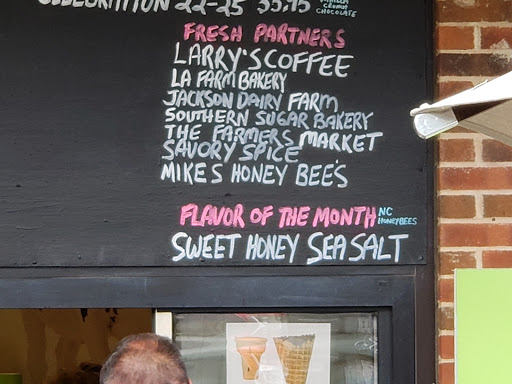 CELEBRATION 22-25 55.75
VANILLA
CRUNCH
CHOCOLATE
FRESH PARTNERS
LARRY'S COFFEE
LA FARM BAKERY
JACKSON DAIRY FARM
SOUTHERN SUGAR BAKERY
THE FARMERS MARKET
SAVORY SPICE
MIKES HONEY BEE'S
FLAVOR OF THE MONTH NC HONEYBEES
SWEET HONEY SEA SALT